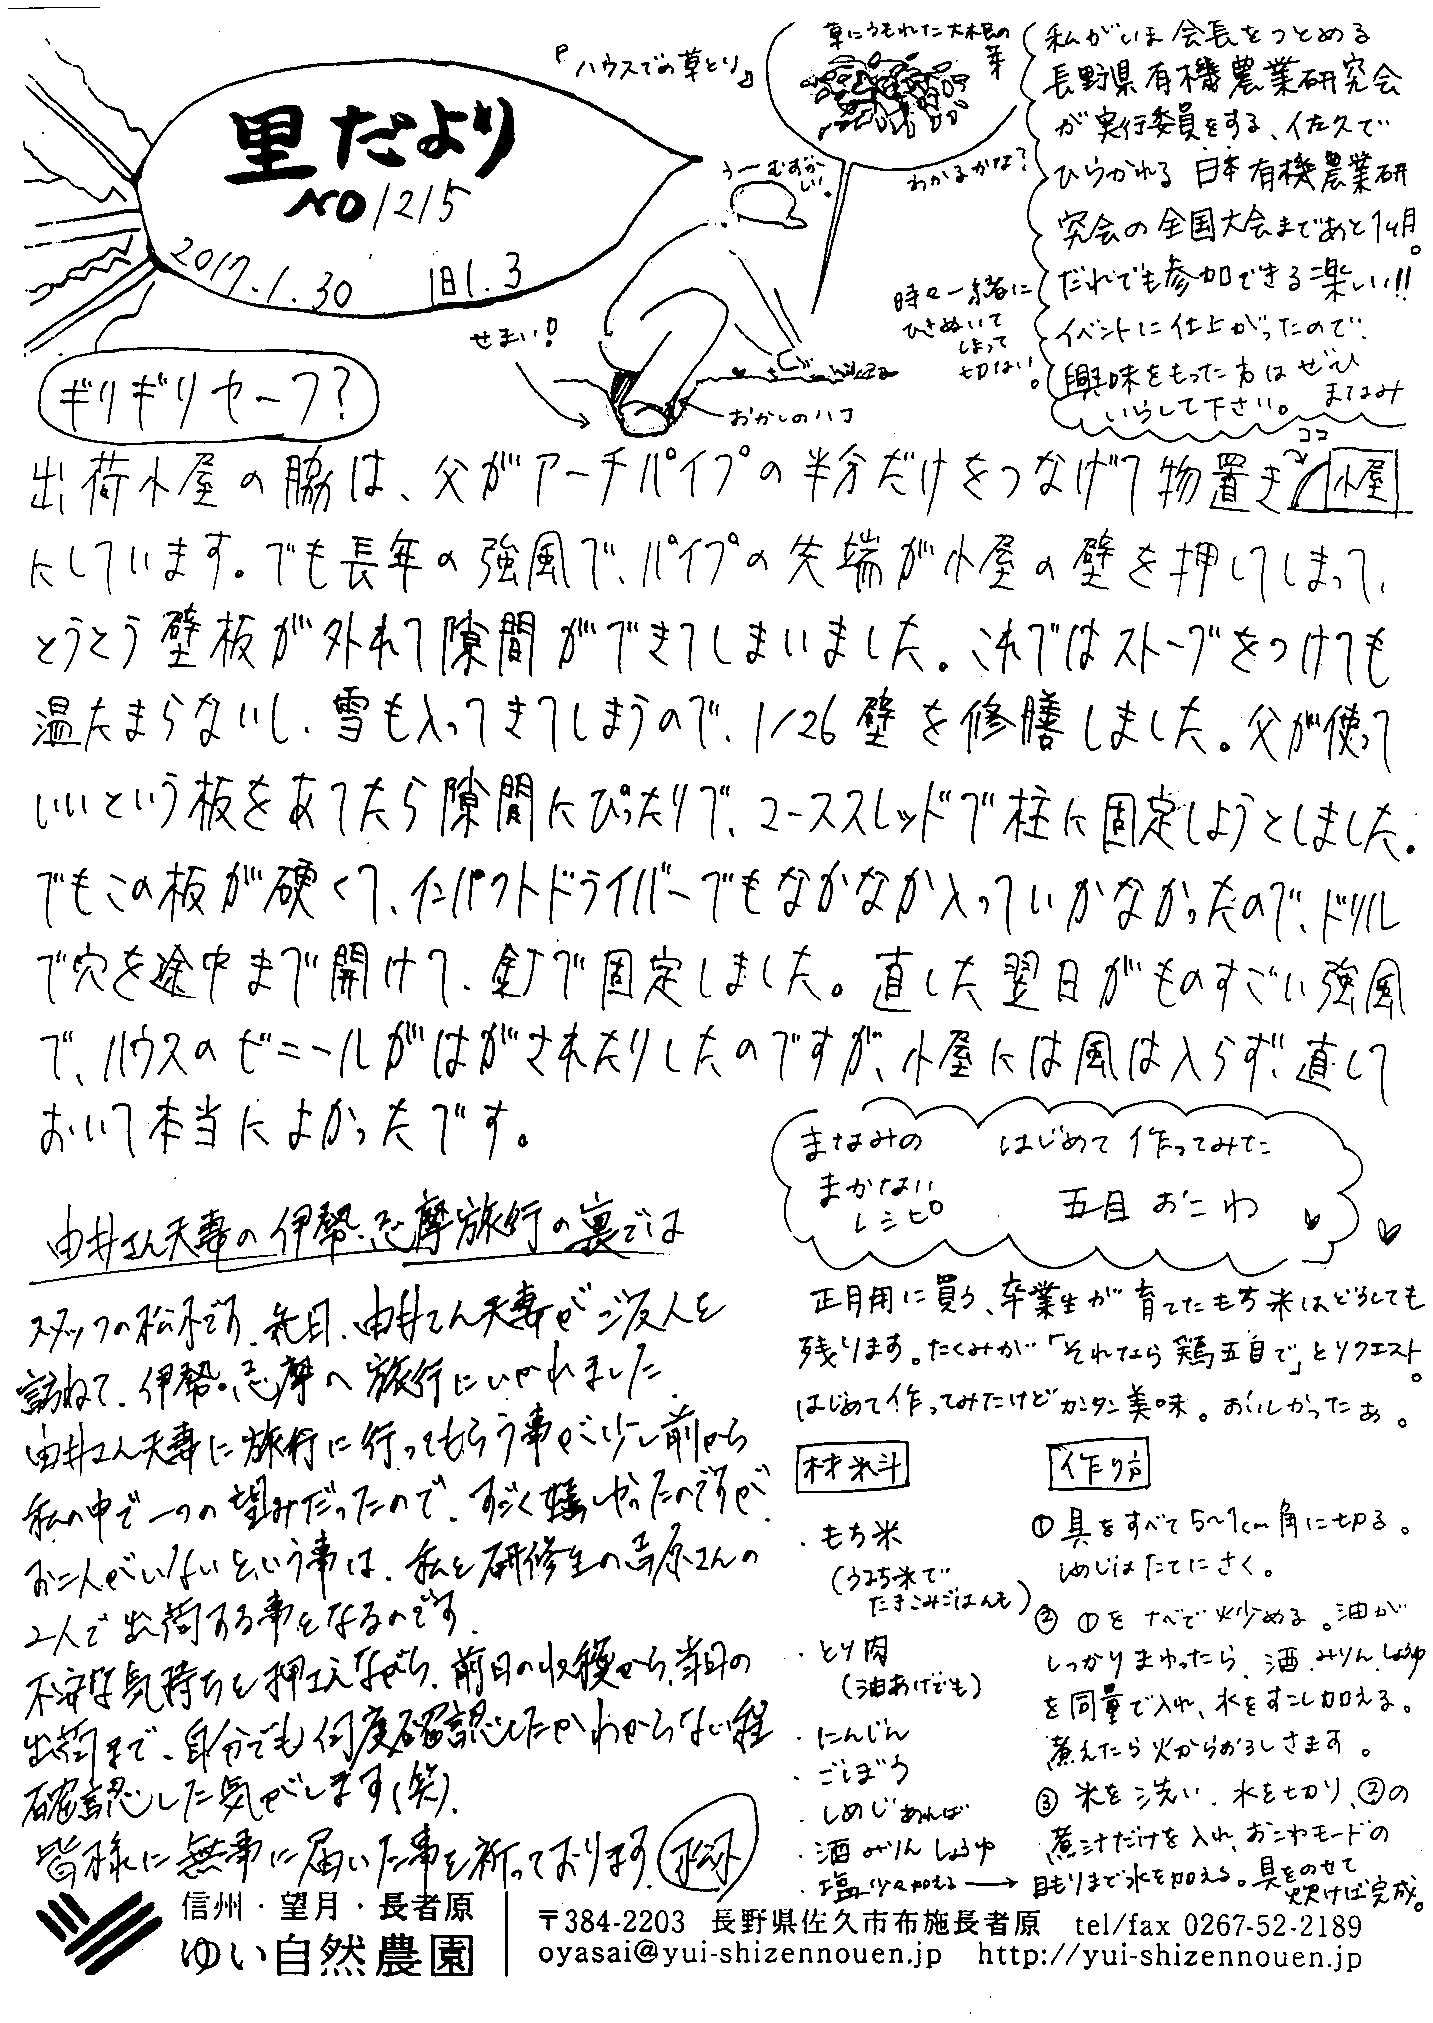 里だより
NO1215
2017.1.30 旧1.3
『ハウスでの草とり』
草にうもれた大根の
芽
わかるかな?
うーむずか
しい。
せまい!
おかしのハコ
時々一緒に
ひきぬいて
しまって
切ない。
私がいま会長をつとめる
長野県有機農業研究会
が実行委員をする、佐久で
ひらかれる日本有機農業研
究会の全国大会まであと1ヶ月。
だれでも参加できる楽しい!!
イベントに仕上がったので、
興味をもった方はぜひ
いらして下さい。 まなみ
ギリギリセーフ?
ココ
小屋
出荷小屋の脇は、父がアーチパイプの半分だけをつなげて物置き
にしています。でも長年の強風で、パイプの先端が小屋の壁を押してしまって、
とうとう壁板が外れて隙間ができてしまいました。これではストーブをつけても
温たまらないし、雪も入ってきてしまうので、1/26壁を修膳しました。父が使って
いいという板をあてたら隙間にぴったりで、コーススレッドで柱に固定しようとしました。
でもこの板が硬くて、インパクトドライバーでもなかなか入っていかなかったので、ドリル
で穴を途中まで開けて、釘で固定しました。直した翌日がものすごい強風
で、ハウスのビニールがはがされたりしたのですが、小屋には風は入らず、直して
おいて本当によかったです。
由井さん夫妻の伊勢・志摩旅行の裏では
スタッフの松木です。先日、由井さん夫妻がご友人を
訪ねて、伊勢・志摩へ旅行にいかれました。
由井さん夫妻に旅行に行ってもらう事が少し前から
私の中で一つの望みだったので、すごく嬉しかったのですが、
お二人がいないという事は、私と研修生の吉原さんの
2人で出荷する事となるのです。
不安な気持ちを押さえながら、前日の収穫から、当日の
出荷まで、自分でも何度確認したかわからない程
確認した気がします(笑)。
皆様に無事に届いた事を祈っております。松木
まなみの
まかない
レシピ。
はじめて作ってみた
五目おこわ
正月用に買う、卒業生が育てたもち米はどうしても
残ります。たくみが「それなら鶏五目で」とリクエスト。
はじめて作ってみたけどカンタン美味。おいしかったぁ。
材料
・もち米
(うるち米で
たきこみごはんも)
・とり肉
(油あげでも)
・にんじん
・ごぼう
・しめじあれば
・酒みりんしょうゆ
・塩少々加える→
作り方
①具をすべて5〜7cm角に切る。
しめじはたてにさく。
②①をナベで炒める。油が
しっかりまわったら、酒、みりん、しょうゆ
を同量で入れ、水をすこし加える。
煮えたら火からおろしさます。
③米を洗い、水を切り、②の
煮汁だけを入れ、おこわモードの
目もりまで水を加える。具をのせて
炊けば完成。
信州・望月・長者原
ゆい自然農園
〒384-2203 長野県佐久市布施長者原 tel/fax 0267-52-2189
oyasai@yui-shizennouen.jp http://yui-shizennouen.jp